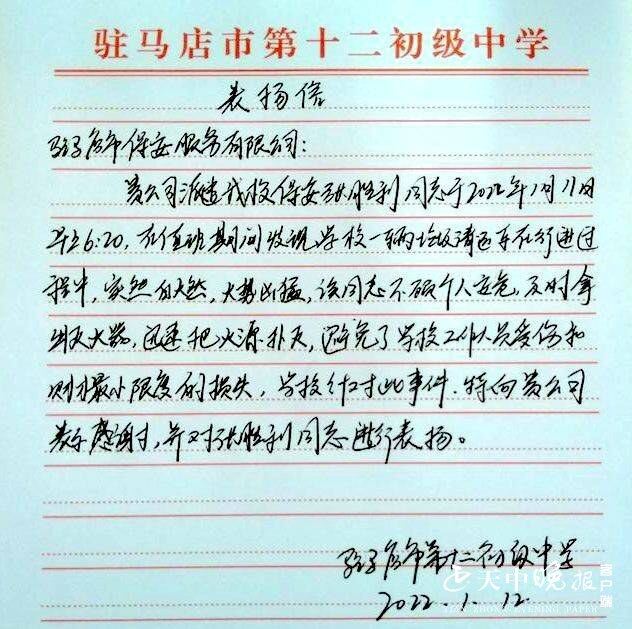 驻马店市第十二初级中学
表扬信
驻马店市保安服务有限公司：
贵公司派遣我校保安张胜利同志于2022年1月11日
早6:20，在值班期间发现学校一辆垃圾清运车在行进过
程中，突然自燃，火势凶猛，该同志不顾个人安危，及时拿
出灭火器，迅速把火源扑灭，避免了学校工作人员受伤和
财物最小限度的损失，学校针对此事件，特向贵公司
表示感谢，并对张胜利同志进行表扬。
驻马店市第十二初级中学
2022.1.12.
天中晚报
客户端
EVENING PAPER